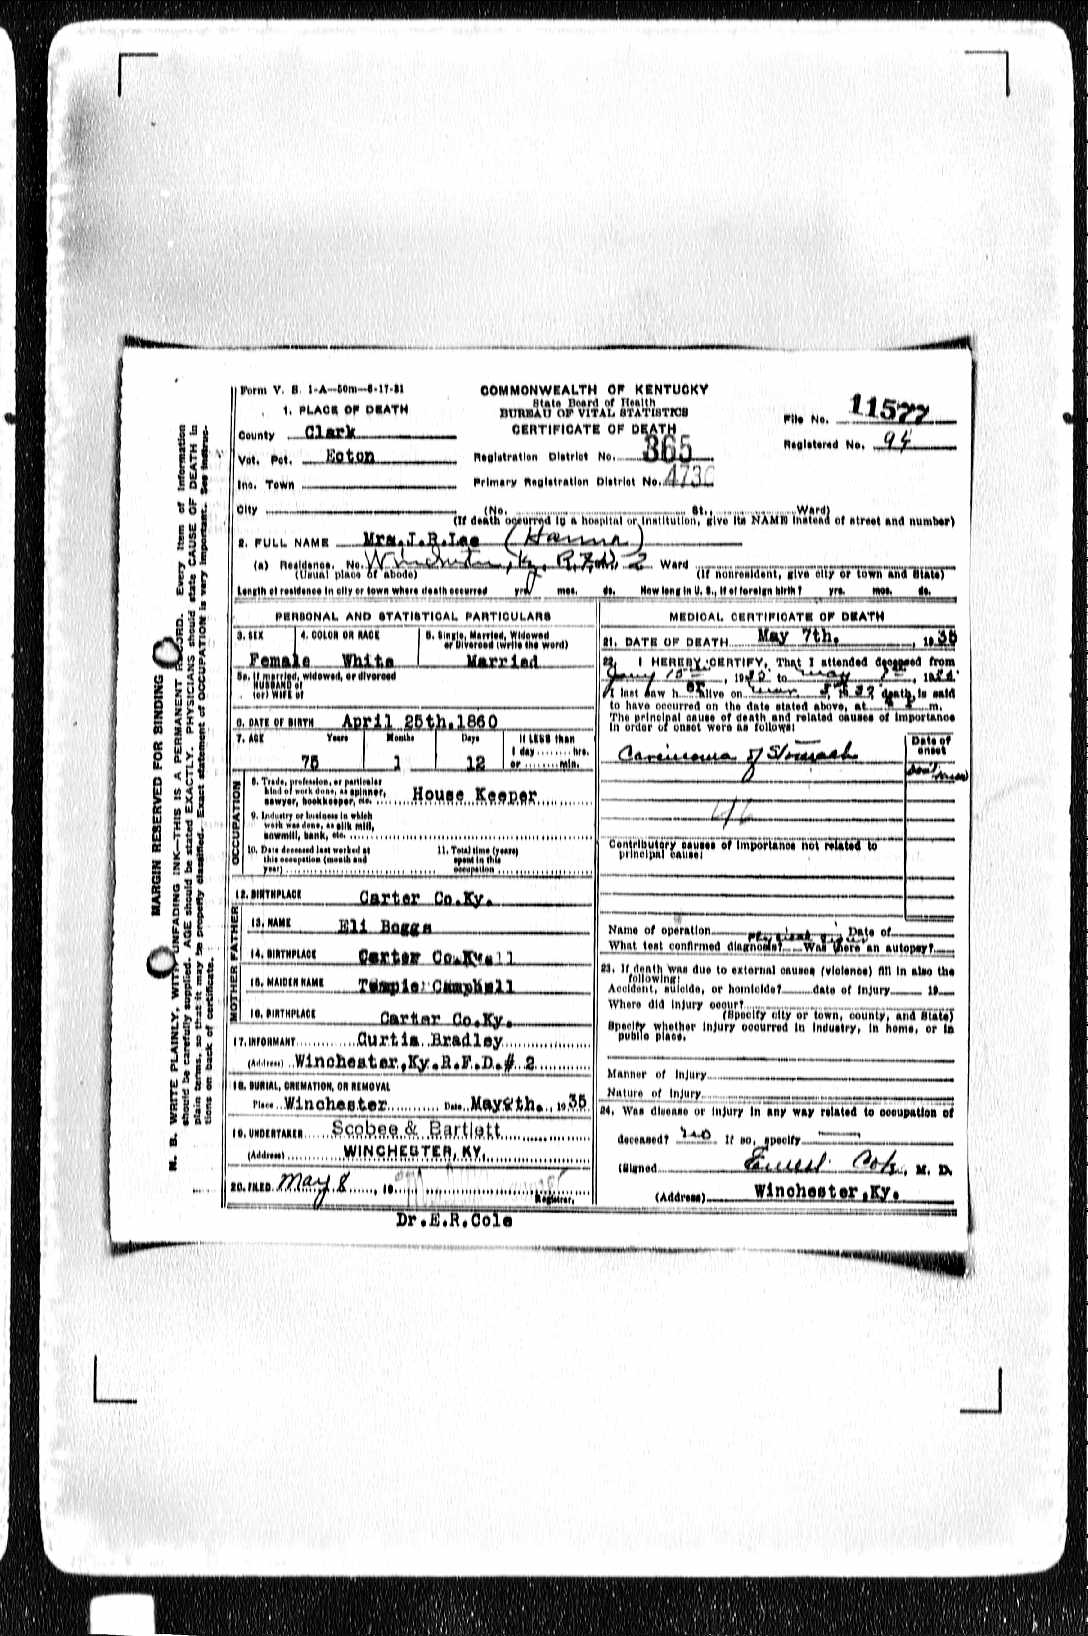 Form V. S. 1-A—50m—6-17-31
COMMONWEALTH OF KENTUCKY
State Board of Health
BUREAU OF VITAL STATISTICS
CERTIFICATE OF DEATH
File No. 11577
Registered No. 94
1. PLACE OF DEATH
County Clark
Vot. Pct. Ecton
Inc. Town
City
Registration District No. 365
Primary Registration District No. 473
(No. St., Ward)
(If death occurred in a hospital or institution, give its NAME instead of street and number)
2. FULL NAME Mrs. J.R. Lee (Hanna)
(a) Residence. No. Winchester, Ky. R.F.D. 2 Ward
(Usual place of abode) (If nonresident, give city or town and State)
Length of residence in city or town where death occurred yrs. mos. ds. How long in U. S., if of foreign birth? yrs. mos. ds.
PERSONAL AND STATISTICAL PARTICULARS
3. SEX 4. COLOR OR RACE 5. Single, Married, Widowed
or Divorced (write the word)
Female White Married
5a. If married, widowed, or divorced
HUSBAND of
(or) WIFE of
6. DATE OF BIRTH April 25th.1860
7. AGE Years Months Days If LESS than
1 day ........ hrs.
or ........ min.
75 1 12
OCCUPATION
8. Trade, profession, or particular
kind of work done, as spinner,
sawyer, bookkeeper, etc. House Keeper
9. Industry or business in which
work was done, as silk mill,
sawmill, bank, etc.
10. Date deceased last worked at
this occupation (month and
year)
11. Total time (years)
spent in this
occupation
12. BIRTHPLACE Carter Co.Ky.
FATHER
13. NAME Eli Boggs
14. BIRTHPLACE Carter Co.Ky
MOTHER
15. MAIDEN NAME Campbell
16. BIRTHPLACE Carter Co.Ky.
17. INFORMANT Curtis Bradley
(Address) Winchester,Ky.R.F.D.# 2
18. BURIAL, CREMATION, OR REMOVAL
Place Winchester Date May 8th. 1935
19. UNDERTAKER Scobee & Bartlett
(Address) WINCHESTER, KY.
20. FILED May 8, 19
Registrar.
Dr.E.R.Cole
MEDICAL CERTIFICATE OF DEATH
21. DATE OF DEATH May 7th. , 1935
22. I HEREBY CERTIFY, That I attended deceased from
Jany 15th, 19 to May 7th, 19
I last saw her alive on death is said
to have occurred on the date stated above, at m.
The principal cause of death and related causes of importance
in order of onset were as follows:
Date of
onset
Carcinoma of Stomach don't know
46
Contributory causes of importance not related to
principal cause:
Name of operation Date of
What test confirmed diagnosis? Physical signs Was there an autopsy?
23. If death was due to external causes (violence) fill in also the
following:
Accident, suicide, or homicide? date of injury 19
Where did injury occur?
(Specify city or town, county, and State)
Specify whether injury occurred in industry, in home, or in
public place.
Manner of Injury
Nature of Injury
24. Was disease or injury in any way related to occupation of
deceased? no If so, specify
(Signed Ernest Cole, M. D.
(Address) Winchester,Ky.
MARGIN RESERVED FOR BINDING
N. B. WRITE PLAINLY, WITH UNFADING INK—THIS IS A PERMANENT RECORD. Every item of information
should be carefully supplied. AGE should be stated EXACTLY. PHYSICIANS should state CAUSE OF DEATH in
plain terms, so that it may be properly classified. Exact statement of OCCUPATION is very important. See instruc-
tions on back of certificate.